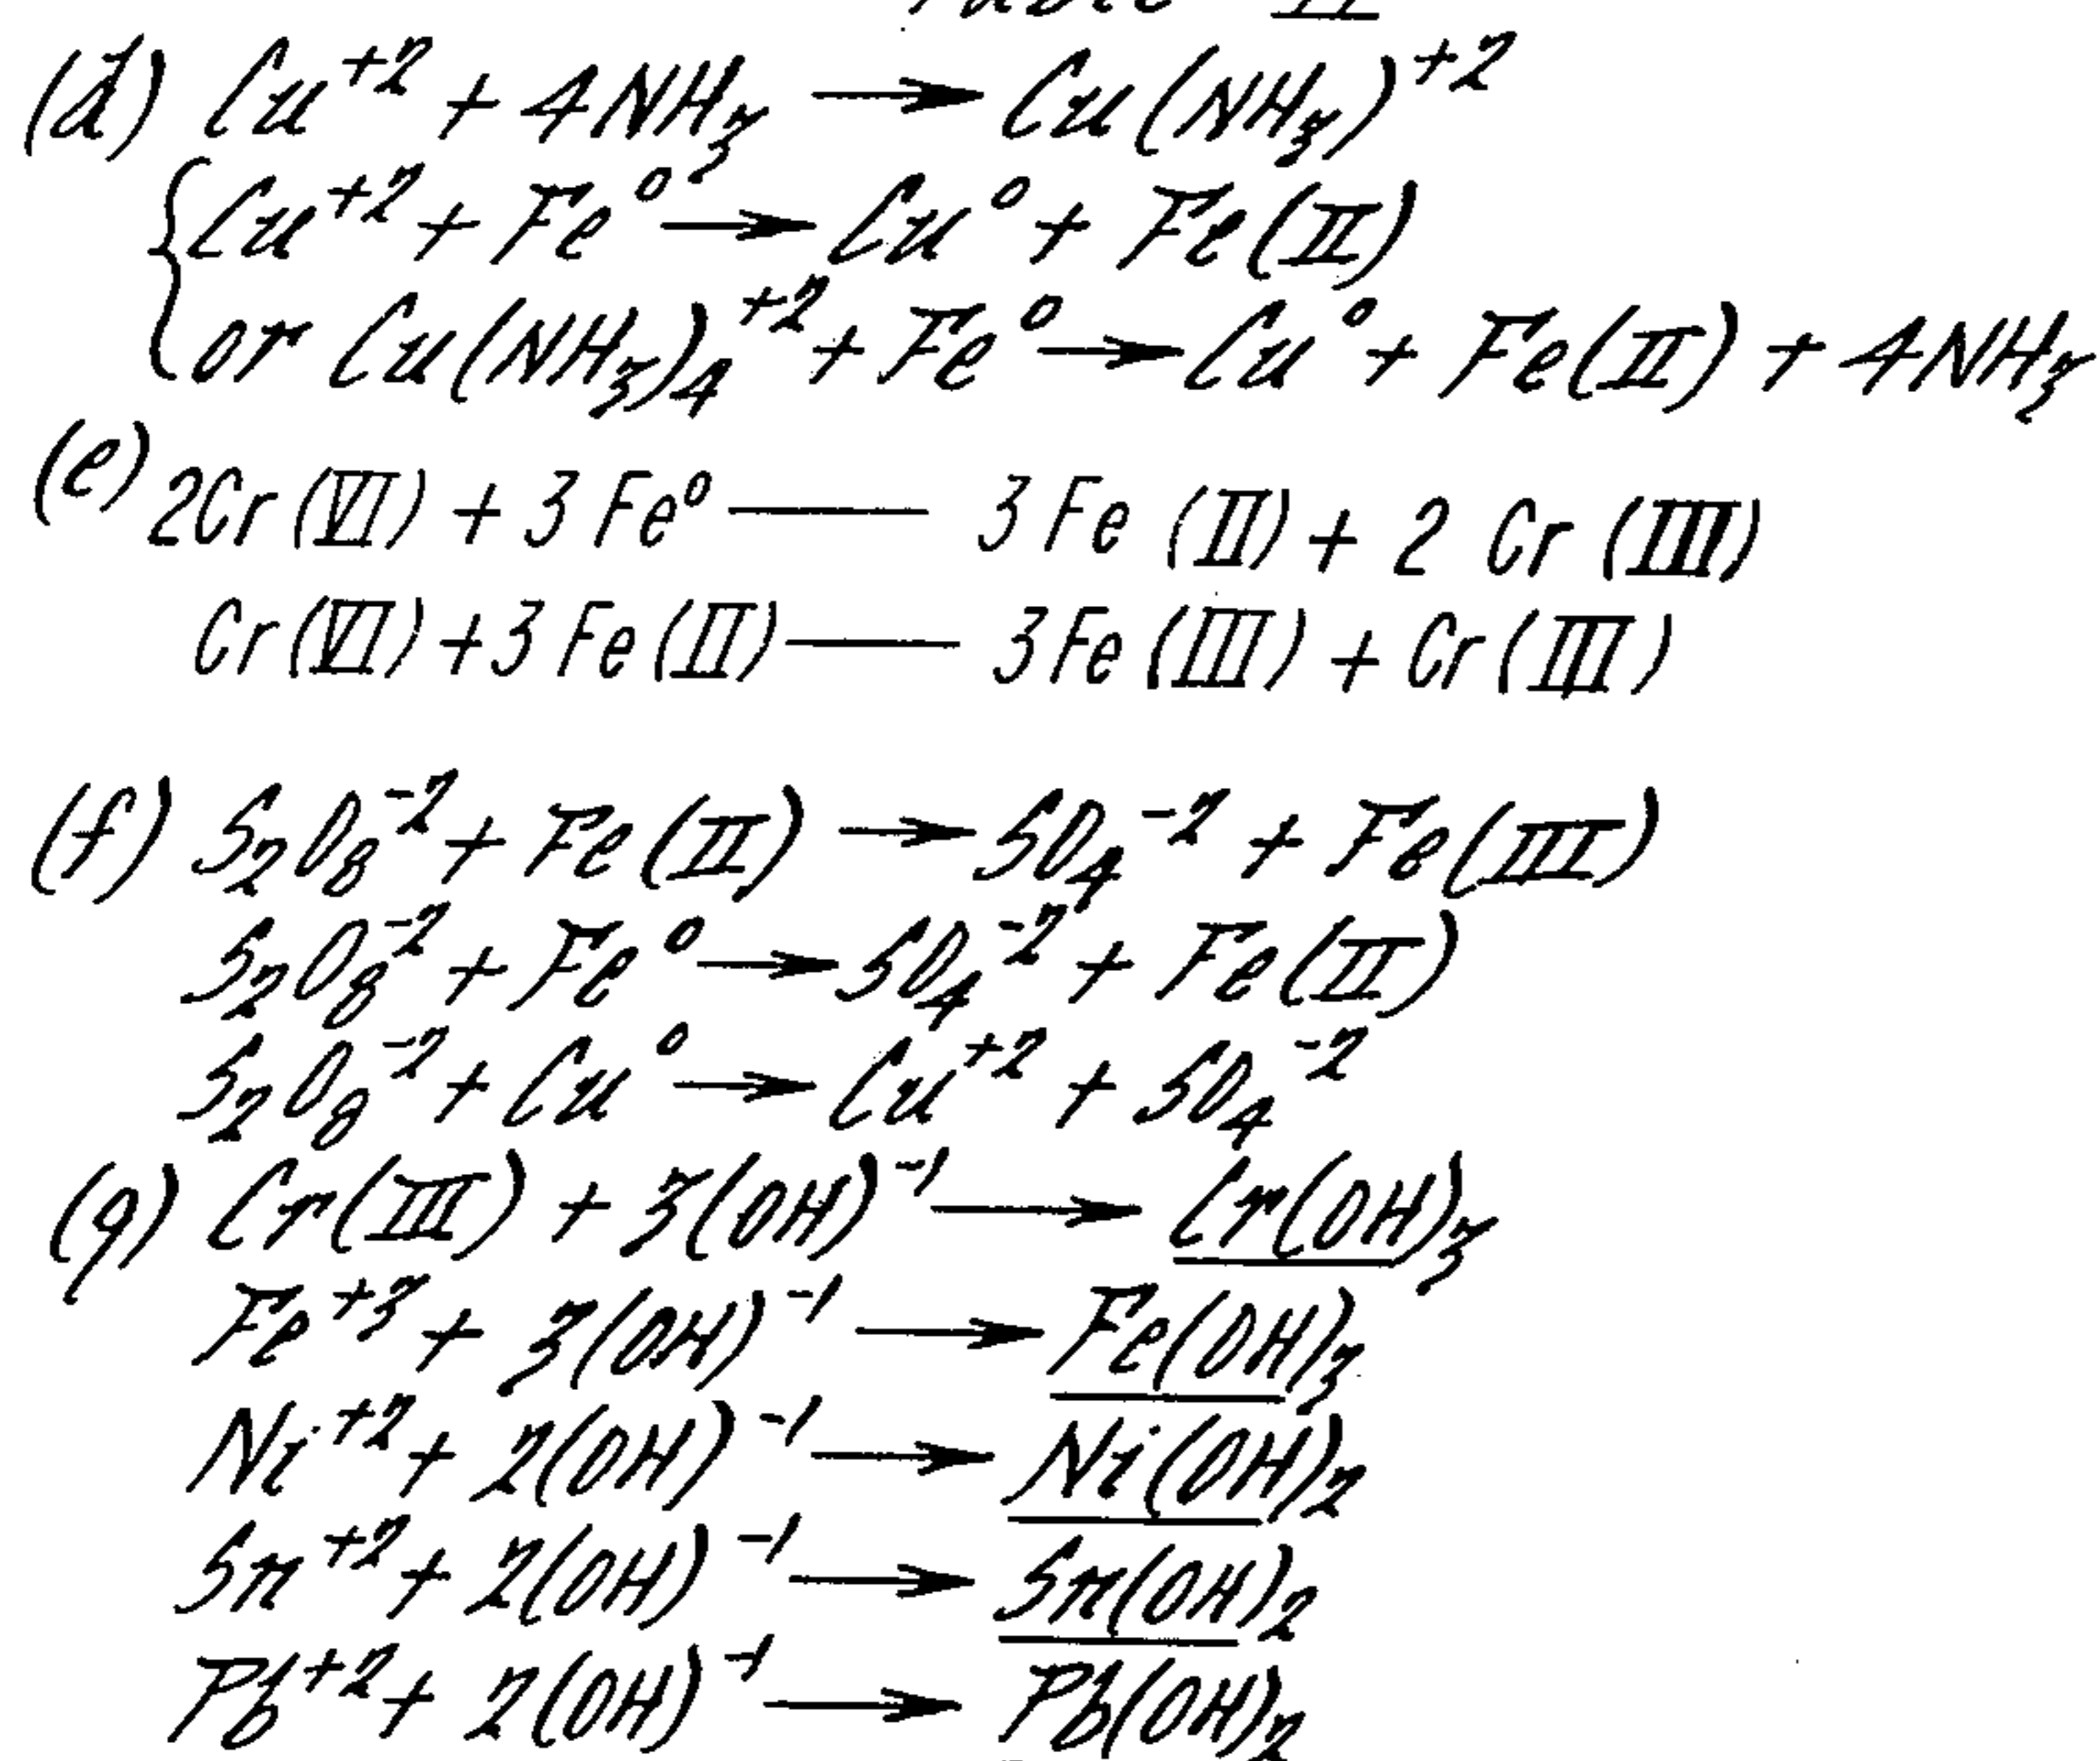 Table II
(d) Cu⁺² + 4NH₃ → Cu(NH₃)⁺²
{Cu⁺² + Fe⁰ → Cu⁰ + Fe(II)
or Cu(NH₃)₄⁺² + Fe⁰ → Cu⁰ + Fe(II) + 4NH₃
(e) 2Cr(VI) + 3Fe⁰ — 3Fe(II) + 2 Cr(III)
Cr(VI) + 3Fe(II) — 3Fe(III) + Cr(III)
(f) S₂O₈⁻² + Fe(II) → SO₄⁻² + Fe(III)
S₂O₈⁻² + Fe⁰ → SO₄⁻² + Fe(II)
S₂O₈⁻² + Cu⁰ → Cu⁺² + SO₄⁻²
(g) Cr(III) + 3(OH)⁻¹ → Cr(OH)₃
Fe⁺³ + 3(OH)⁻¹ → Fe(OH)₃
Ni⁺² + 2(OH)⁻¹ → Ni(OH)₂
Sn⁺² + 2(OH)⁻¹ → Sn(OH)₂
Pb⁺² + 2(OH)⁻¹ → Pb(OH)₂